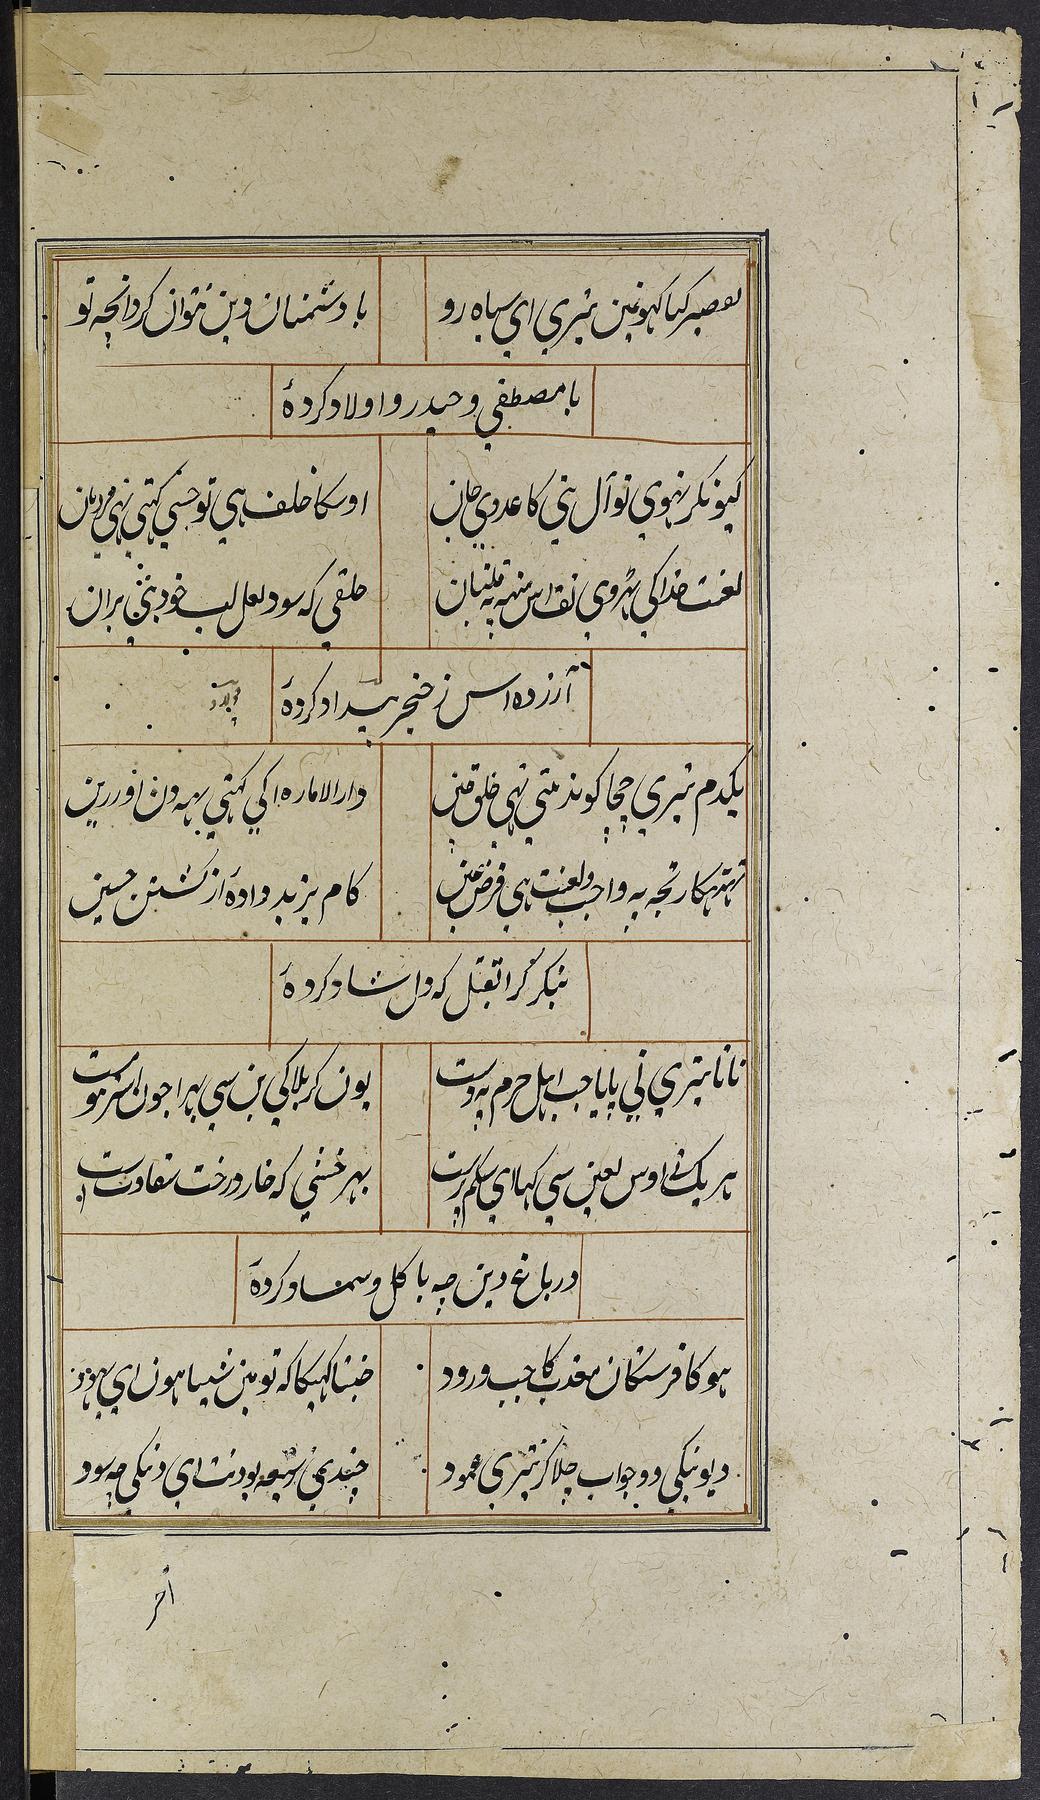 تقصیر کیا کہونمین تیری ای سیاه رو
با دشمنان دین نتوان کرد انچه تو
با مصطفی و حیدر و اولاد کردهٔ
کیونکر نہوی تو آل نبی کا عدوی جان
اوسکا خلف ہی تو جسی کہتی نہی مروان
لعنت خدا کی ہووی
حلقی که سود لعل لب خود نبی بران
آزرده اس ز خنجر بیداد کردهٔ
یکدم تیری جچا کو نہ ملتی نہی خلق مین
دار الاماره اکی کہتی یہہ دن اور رین
تجه په واجب و لعنت ہی فرض عین
کام یزید دادهٔ از کشتن حسین
بنگر کرا بقتل که دل شاد کردهٔ
نانا تیری نی پایا جب اہل حرم په دست
یون کربلا کی بن سی پہرا جون شتر مست
ہر یک نی اوس لعین سی کہا ای ستم پرست
بہر خسی که خار درخت شقاوت است
در باغ دین چه با کل و شمشاد کردهٔ
ہو کا فرستکان معذب کا جب ورود
کہیکا که تو مین ہون ای یہود
دیونکی دو جواب جلا کر تیری عمود
ای دنکی چه سود
آخر